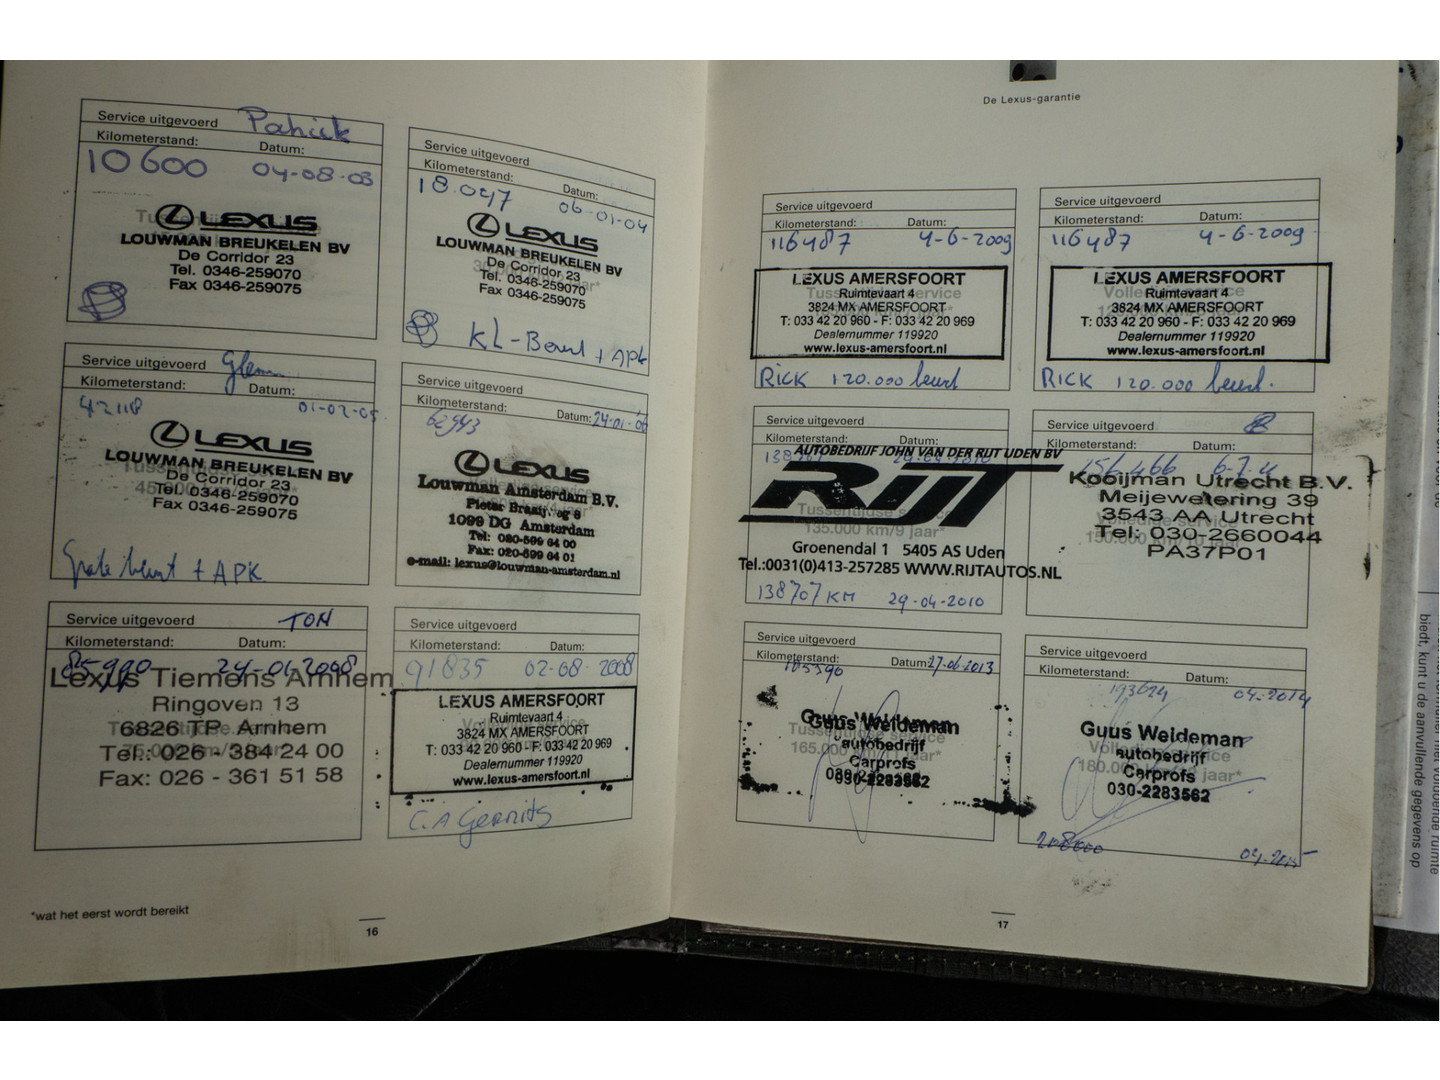 Service uitgevoerd Patrick
Kilometerstand: Datum:
10600 04-08-03
LEXUS
LOUWMAN BREUKELEN BV
De Corridor 23
Tel. 0346-259070
Fax 0346-259075
Service uitgevoerd
Kilometerstand: Datum:
18.097 06-01-04
LEXUS
LOUWMAN BREUKELEN BV
De Corridor 23
Tel. 0346-259070
Fax 0346-259075
KL-Beurt + APK
Service uitgevoerd Glenn
Kilometerstand: Datum:
42118 01-02-05
LEXUS
LOUWMAN BREUKELEN BV
De Corridor 23
Tel. 0346-259070
Fax 0346-259075
Grote beurt + APK
Service uitgevoerd
Kilometerstand: Datum: 24-01-06
62943
LEXUS
Louwman Amsterdam B.V.
1099 DG Amsterdam
Tel: 020-599 64 00
Fax: 020-699 64 01
e-mail: lexus@louwman-amsterdam.nl
Service uitgevoerd TON
Kilometerstand: Datum:
85990 24-01-2008
Lexus Tiemens Arnhem
Ringoven 13
6826 TP Arnhem
Tel.: 026 - 384 24 00
Fax: 026 - 361 51 58
Service uitgevoerd
Kilometerstand: Datum:
91835 02-08-2008
LEXUS AMERSFOORT
Ruimtevaart 4
3824 MX AMERSFOORT
T: 033 42 20 960 - F: 033 42 20 969
Dealernummer 119920
www.lexus-amersfoort.nl
C.A Gerrits
*wat het eerst wordt bereikt
16
De Lexus-garantie
Service uitgevoerd
Kilometerstand: Datum:
116487 4-6-2009
LEXUS AMERSFOORT
Ruimtevaart 4
3824 MX AMERSFOORT
T: 033 42 20 960 - F: 033 42 20 969
Dealernummer 119920
www.lexus-amersfoort.nl
RICK 120.000 beurt
Service uitgevoerd
Kilometerstand: Datum:
116487 4-6-2009
LEXUS AMERSFOORT
Ruimtevaart 4
3824 MX AMERSFOORT
T: 033 42 20 960 - F: 033 42 20 969
Dealernummer 119920
www.lexus-amersfoort.nl
RICK 120.000 beurt.
Service uitgevoerd
Kilometerstand: Datum:
AUTOBEDRIJF JOHN VAN DER RIJT UDEN BV
RIJT
Tussentijdse service
135.000 km/9 jaar*
Groenendal 1 5405 AS Uden
Tel.:0031(0)413-257285 WWW.RIJTAUTOS.NL
138707 KM 29-04-2010
Service uitgevoerd
Kilometerstand: Datum:
156.466
Kooijman Utrecht B.V.
Meijewetering 39
3543 AA Utrecht
Tel: 030-2660044
PA37P01
Service uitgevoerd
Kilometerstand: Datum: 27-06-2013
Guus Weldeman
autobedrijf
Carprofs
030-2283562
Service uitgevoerd
Kilometerstand: Datum:
193624 04-2014
Guus Weldeman
autobedrijf
Carprofs
030-2283562
208000 04-2015
17
biedt, kunt u de aanvullende gegevens op